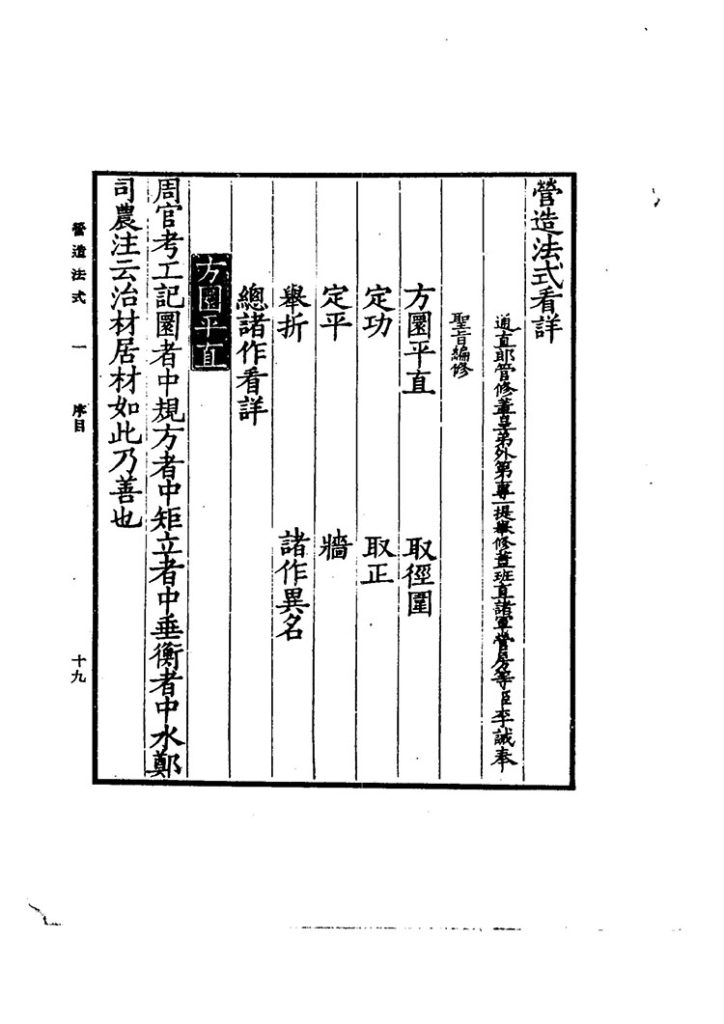 營造法式看詳
通直郎管修蓋皇弟外第專一提舉修蓋班直諸軍營房等臣李誡奉
聖旨編修
方圜平直 取徑圍
定功 取正
定平 牆
舉折 諸作異名
總諸作看詳
方圜平直
周官考工記圜者中規方者中矩立者中垂衡者中水鄭
司農注云治材居材如此乃善也
營造法式 一 序目 十九